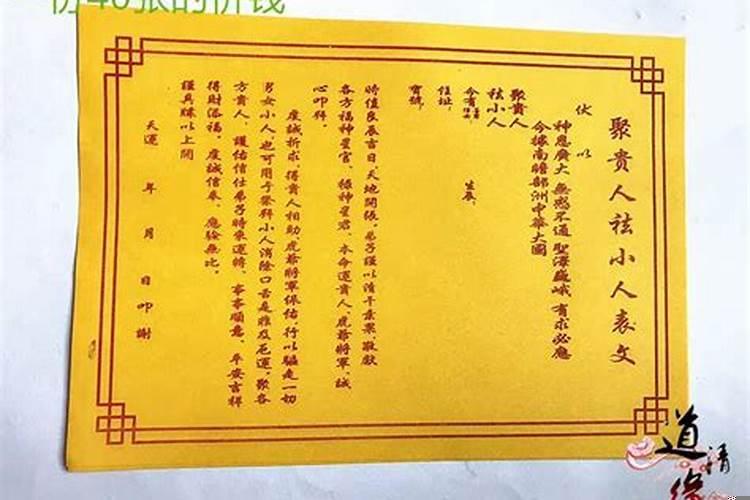 份40张的价钱
聚貴人祛小人表文
伏以
神恩廣大 無惑不通 聖澤盛峨 有求必應
今據南瞻部洲中華大國
聚貴人
祛小人
今有 生辰，
住址，
寶號，
時值良辰吉日，天地開張，弟子謹以清干素果 敬獻
各方福神星官，祿神星君，本命運貴人，虎爺將軍，誠
心叩拜。
虔誠祈求，得貴人相助虎爺將軍保佑 行以驅走一切
男女小人，也可用于祭拜小人消除口舌是非及厄運，聚各
方貴人，護佑信仕弟子時來運轉，事事順意，平安吉祥
得財添福，虔誠信奉，應驗無比。
謹具牒以上聞
天運 年 月 日叩謝
道清